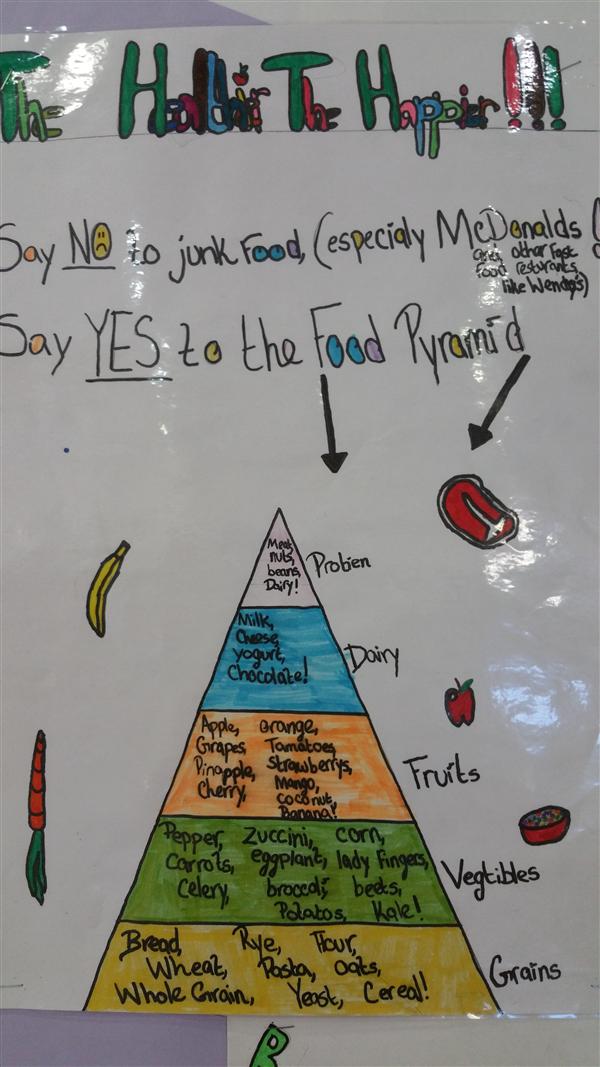 The Healthier The Happier!!!
Say NO to junk Food, (especialy McDonalds!
and other fast
food resturants,
like Wendy's)
Say YES to the Food Pyramid
Meat,
nuts,
beans,
Dairy!
Protien
Milk,
Cheese,
yogurt,
Chocolate!
Dairy
Apple, orange,
Grapes, Tomatoes,
Pinapple, strawberrys,
Cherry, Mango,
coconut,
Banana!
Fruits
Pepper, Zuccini, corn,
Carrots, eggplant, lady fingers,
Celery, broccoli, beets,
Potatos, Kale!
Vegtibles
Bread, Rye, Flour,
Wheat, Pasta, Oats,
Whole Grain, Yeast, Cereal!
Grains
B